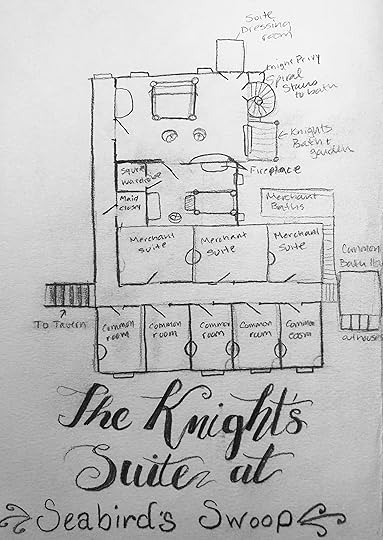 Suite
Dressing
room
Knight Privy
Spiral
Stairs
to bath
Knights
Bath +
garden
Fireplace
Squire
wardrobe
Maid
closet
Merchant
Baths
Merchant
Suite
Merchant
Suite
Merchant
Suite
Common
Bath
outhouses
To Tavern
Common
room
Common
room
Common
room
Common
room
Common
room
The Knight's
Suite at
Seabird's Swoop